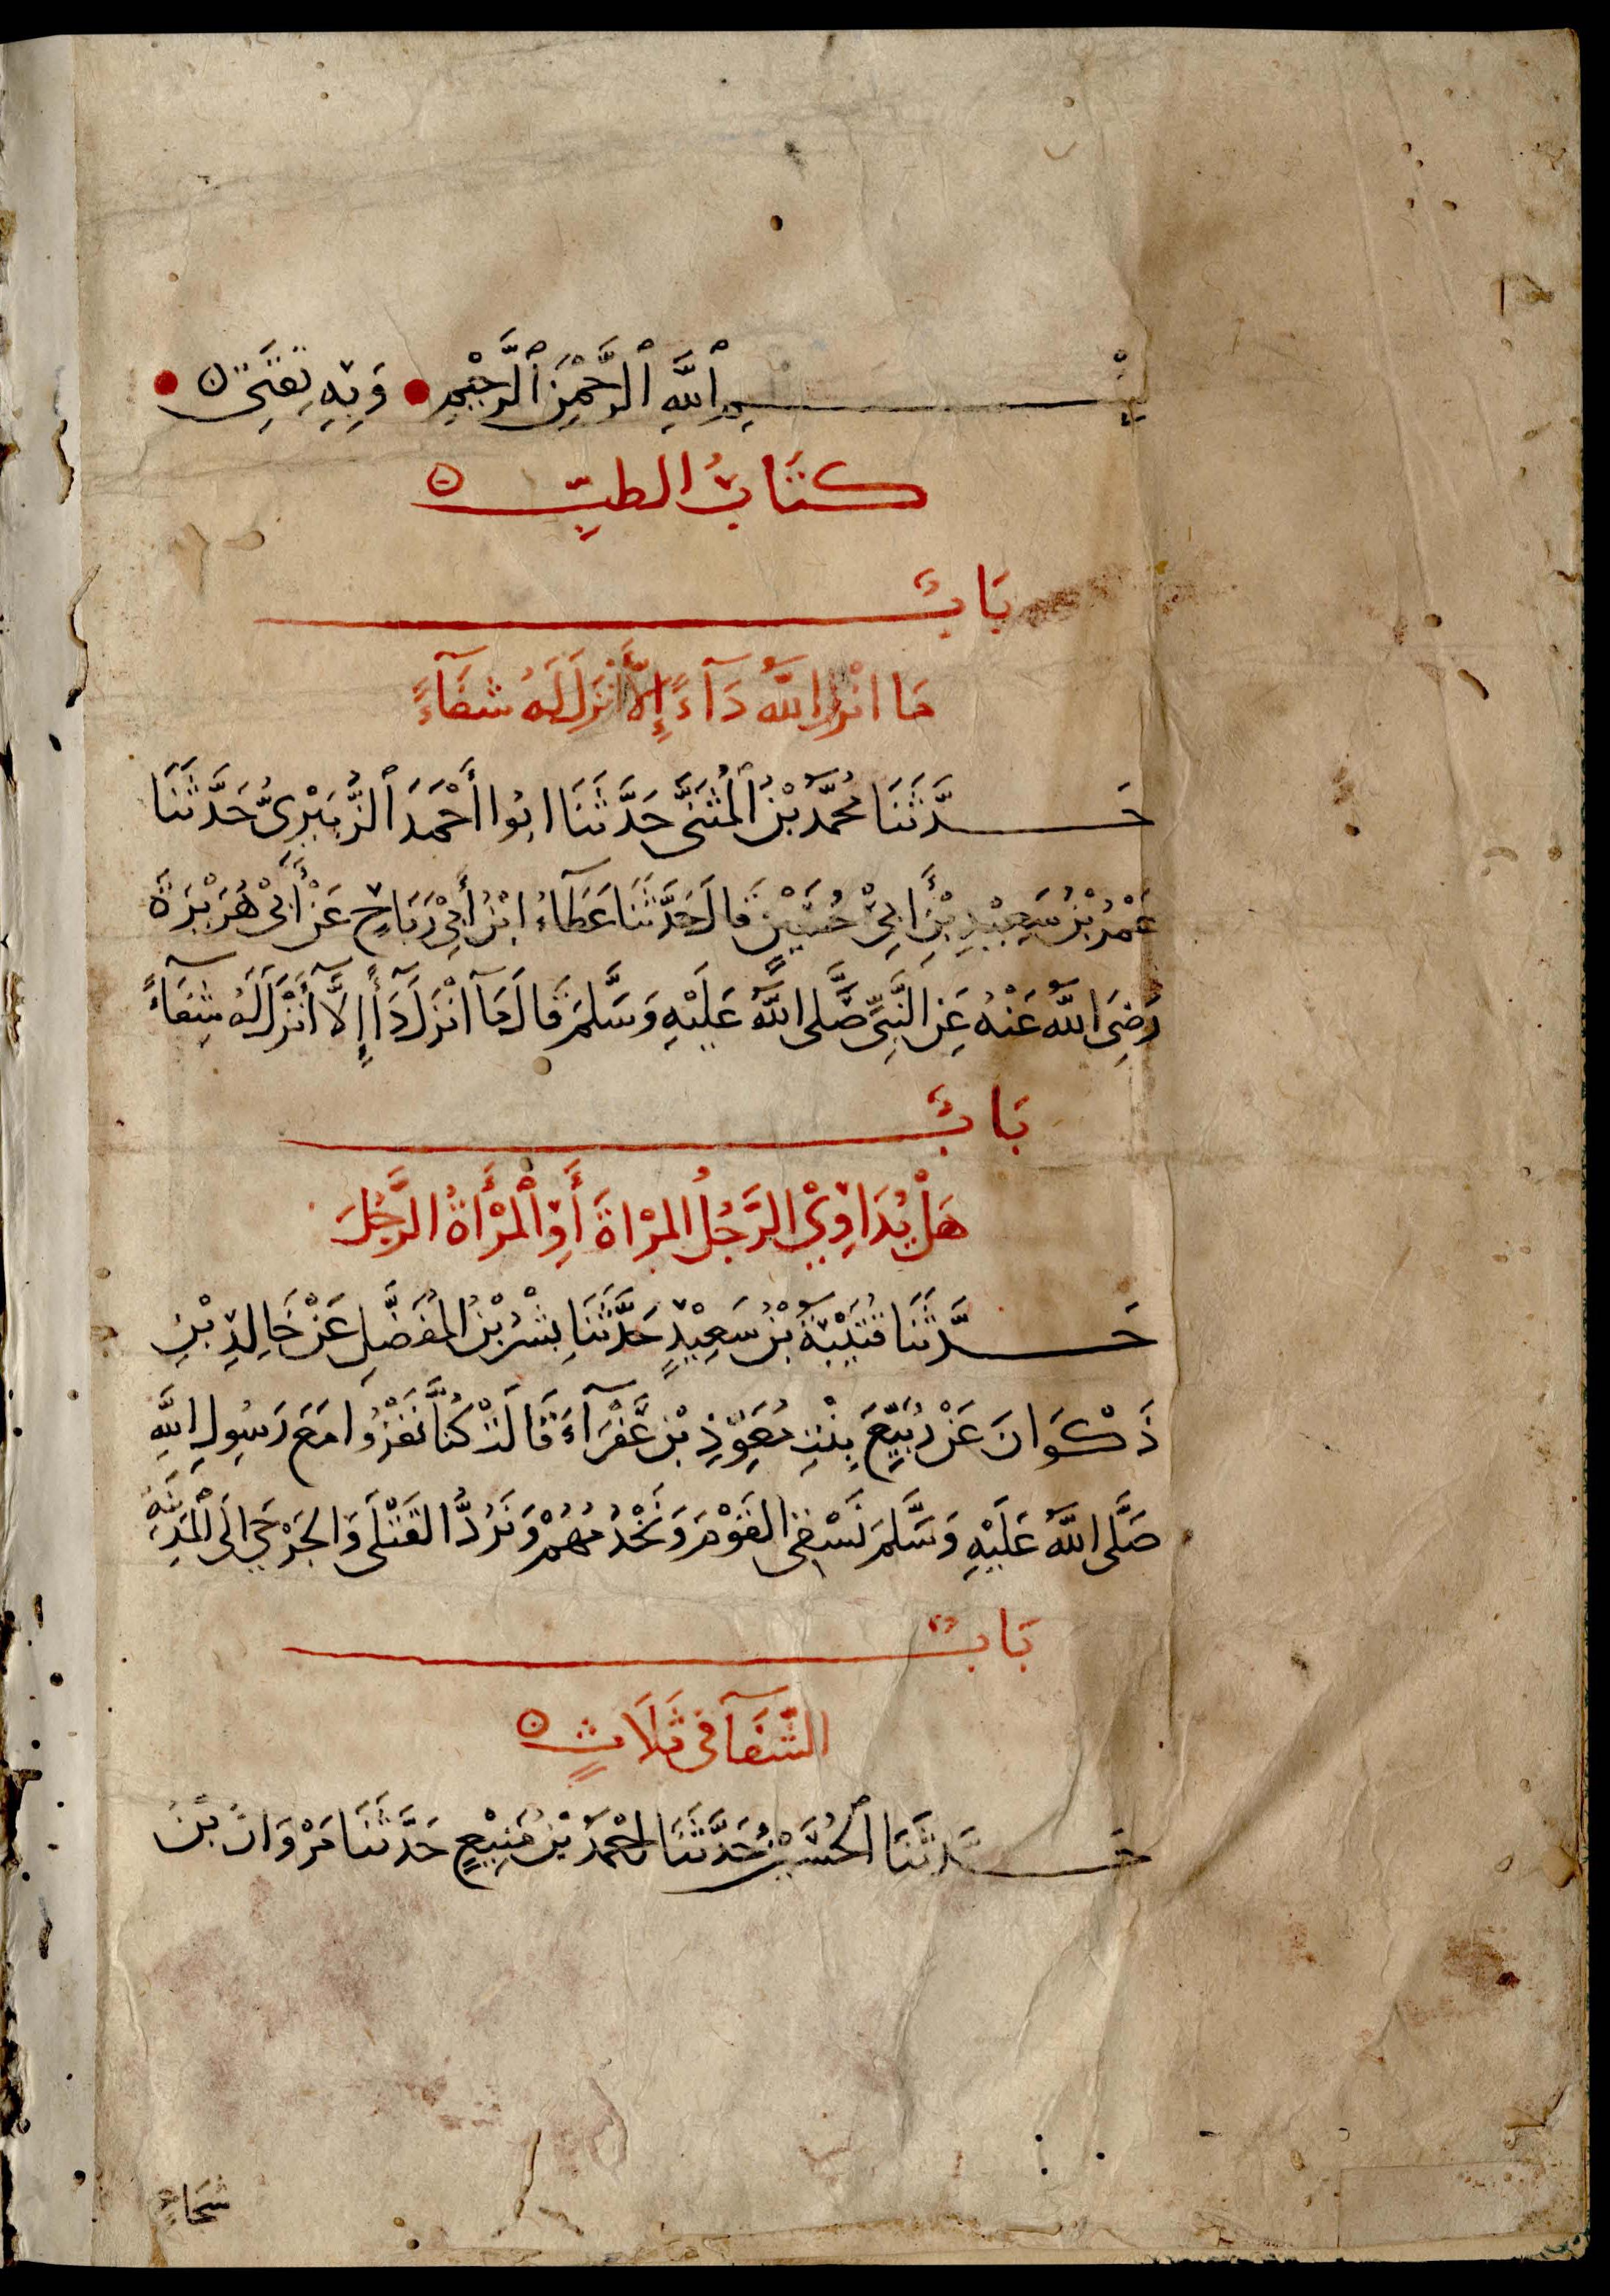 بِسْمِ ٱللَّهِ ٱلرَّحْمٰنِ ٱلرَّحِيْمِ وَبِهِ ثِقَتِى
كتَابُ الطبِّ
بَابُ
مَا انْزلَ اللَّهُ دَآءً إِلَّا أَنْزَلَ لَهُ شفَآءً
حَدَّثَنَا مُحَمَّدُ بْنُ ٱلْمُثَنَّى حَدَّثَنَا ابُوا أَحْمَدَ ٱلزُّبَيْرِىُّ حَدَّثَنَا
عَمْرُ بْنُ سَعِيْدِ بْنِ أَبِيْ حُسَيْنٍ قَالَ حَدَّثَنَا عَطَآءُ ابْنُ أَبِيْ رَبَاحٍ عَنْ أَبِيْ هُرَيْرَةَ
رَضِىَ اللَّهُ عَنْهُ عَنِ النَّبِىِّ صَلَّى اللَّهُ عَلَيْهِ وَسَلَّمَ قَالَ مَآ انْزَلَ دَآأً إِلَّا أَنْزَلَ لَهُ شِفَآءً
بَابُ
هَلْ يُدَاوِيْ الرَّجُلُ المَرْاةَ أَوِ الْمَرْأَةُ الرَّجُلَ
حَدَّثَنَا قُتَيْبَةُ بْنُ سَعِيْدٍ حَدَّثَنَا بِشْرُ بْنُ الْمُفَضَّلِ عَنْ خَالِدِ بْنِ
ذَكْوَانَ عَنْ رُبَيِّعَ بِنْتِ مُعَوِّذِ بْنِ عَفْرَآءَ قَالَتْ كُنَّا نَغْزُوا مَعَ رَسُولِ اللَّهِ
صَلَّى اللَّهُ عَلَيْهِ وَسَلَّمَ نَسْقِى القَوْمَ وَنَخْدُمُهُمْ وَنَرُدُّ القَتْلَى وَالجَرْحَى الَى الْمَدِيْنَةِ
بَابُ
الشِّفَآ فى ثَلَاثٍ
حَدَّثَنَا ٱلْحُسَيْنُ حَدَّثَنَا احْمَدُ بْنُ مَنِيْعٍ حَدَّثَنَا مَرْوَانُ بْنُ
شجَاعٍ